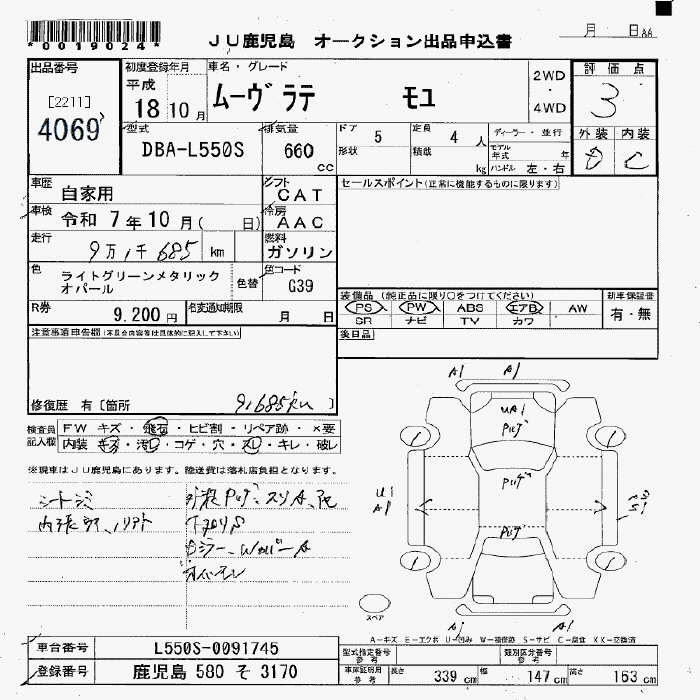 *0019024*
JU鹿児島 オークション出品申込書
月 日 AA
出品番号
[2211]
4069
初度登録年月
平成
18 10 月
車名・グレード
ムーヴ ラテ
2WD
・
4WD
評価点
3
外装 内装
D C
型式
DBA-L550S
排気量
660
cc
ドア 5
形状
定員 4 人
積載 kg
ディーラー・並行
モデル年式 年
ハンドル 左・右
車歴
自家用
シフト
CAT
セールスポイント(正常に機能するものに限ります)
車検
令和 7年10月( 日)
冷房
AAC
走行
9万1千685 km
燃料
ガソリン
色
ライトグリーンメタリック
オパール
色替
色コード
G39
R券
9.200円
名変通知期限
月 日
装備品(純正品に限り○をつけてください)
PS PW ABS エアB AW
SR ナビ TV カワ
新車保証書
有・無
後日品
注意事項申告欄(不具合内容等は具体的に記入して下さい)
修復歴 有〔箇所
91,685km 〕
検査員
記入欄
FW キズ・飛石・ヒビ割・リペア跡・×要
内装・キズ・汚レ・コゲ・穴・スレ・キレ・破レ
※現車はJU鹿児島にあります。陸送費は落札店負担となります。
A1 A1
UA1
U1
A1
A1 A1
スペア
A-キズ E-エクボ U-凹み W-補修跡 S-サビ C-腐食 XX-交換済
車台番号
L550S-0091745
登録番号
鹿児島 580 そ 3170
型式指定番号
参考
類別区分番号
参考
車庫証明用
参考
長さ 339 cm
幅 147 cm
高さ 163 cm